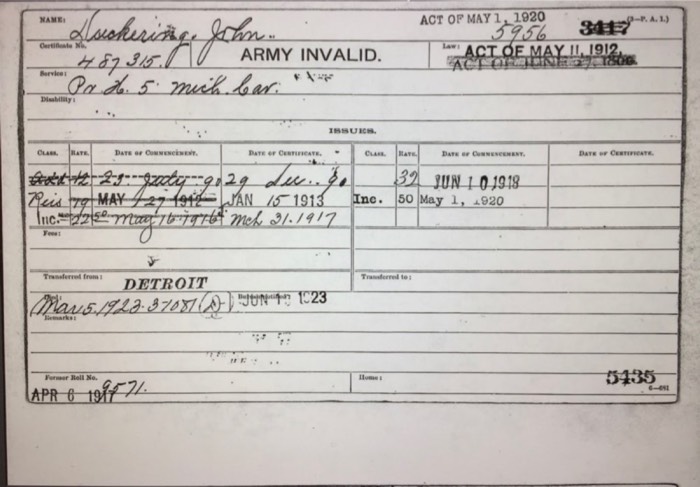 NAME: Duckering, John.
ACT OF MAY 1, 1920
(3-P. A. 1.)
5956 3417
Certificate No.
487315.
ARMY INVALID.
Law: ACT OF MAY 11, 1912.
ACT OF JUNE 27, 1890.
Service:
Pr H. 5 Mich. Cav.
Disability:
ISSUES.
CLASS. RATE. DATE OF COMMENCEMENT. DATE OF CERTIFICATE. CLASS. RATE. DATE OF COMMENCEMENT. DATE OF CERTIFICATE.
12 23 July 90 29 Dec. 90 32 JUN 10 1918
Reis 19 MAY 27 1912 JAN 15 1913 Inc. 50 May 1, 1920
Inc. 22 50 May 16 1916 Mch 31. 1917
Fees:
Transferred from:
DETROIT
Transferred to:
Died: Mar 5. 1923. 37081 (D)
1923
Remarks:
Former Roll No.
9571.
APR 6 1917
Home:
5435